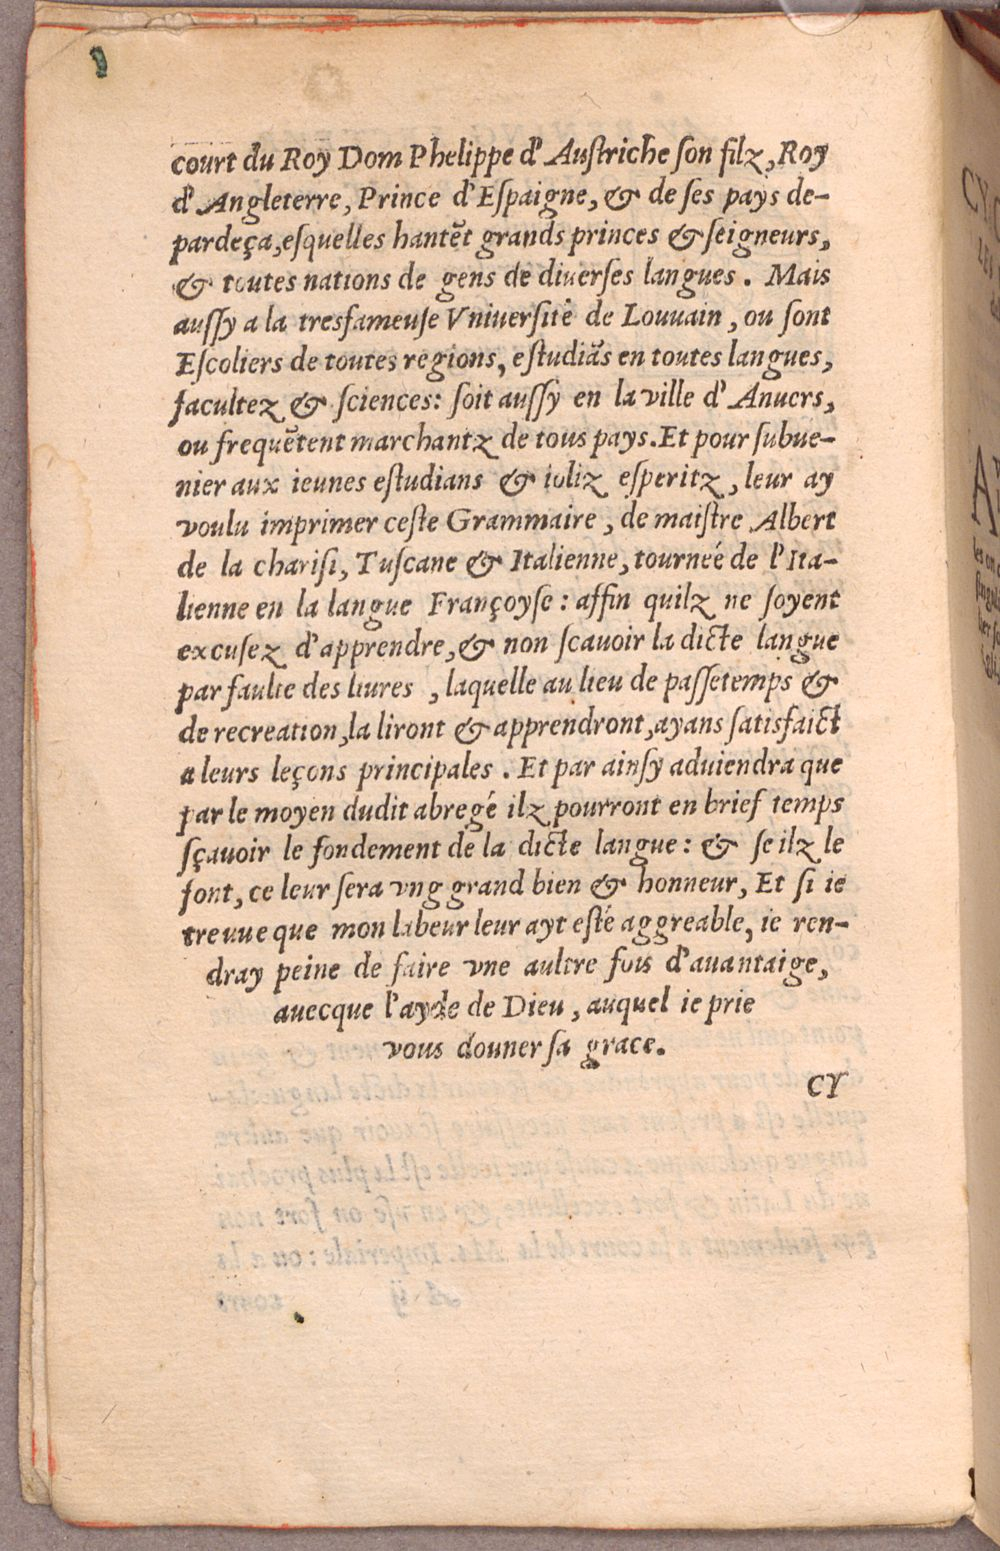 court du Roy Dom Phelippe d'Auſtriche ſon filz, Roy
d'Angleterre, Prince d'Eſpaigne, & de ſes pays de-
pardeça, eſquelles hantēt grands princes & ſeigneurs,
& toutes nations de gens de diuerſes langues. Mais
auſſy a la tresfameuſe Vniuerſité de Louuain, ou ſont
Eſcoliers de toutes regions, eſtudiās en toutes langues,
facultez & ſciences: ſoit auſſy en la ville d'Anuers,
ou frequētent marchantz de tous pays. Et pour ſubue-
nier aux ieunes eſtudians & ioliz eſperitz, leur ay
voulu imprimer ceſte Grammaire, de maiſtre Albert
de la chariſi, Tuſcane & Italienne, tourneé de l'Ita-
lienne en la langue Françoyſe: affin quilz ne ſoyent
excuſez d'apprendre, & non ſcavoir la dicte langue
par faulte des liures, laquelle au lieu de paſſetemps &
de recreation, la liront & apprendront, ayans ſatisfaict
a leurs leçons principales. Et par ainſy aduiendra que
par le moyen dudit abregé ilz pourront en brief temps
ſçauoir le fondement de la dicte langue: & ſe ilz le
font, ce leur ſera vng grand bien & honneur, Et ſi ie
treuue que mon labeur leur ayt eſté aggreable, ie ren-
dray peine de faire vne aultre fois d'auantaige,
auecque l'ayde de Dieu, auquel ie prie
vous donner ſa grace.
CY